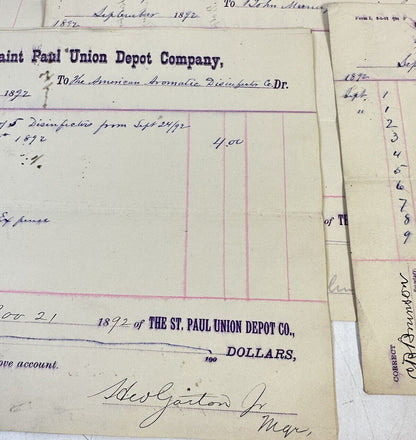 September 1892
To John
Saint Paul Union Depot Company,
To The American Aromatic Disinfector Co. Dr.
1892
of 5 Disinfectors from Sept 24/92
1892
4.00
Expense
Nov 21 1892 of THE ST. PAUL UNION DEPOT CO.,
100 DOLLARS,
ove account.
Geo Garton Jr
Mgr.
of TH
1892
Sept. 1
" 1
2
3
4
5
6
7
8
9
CORRECT